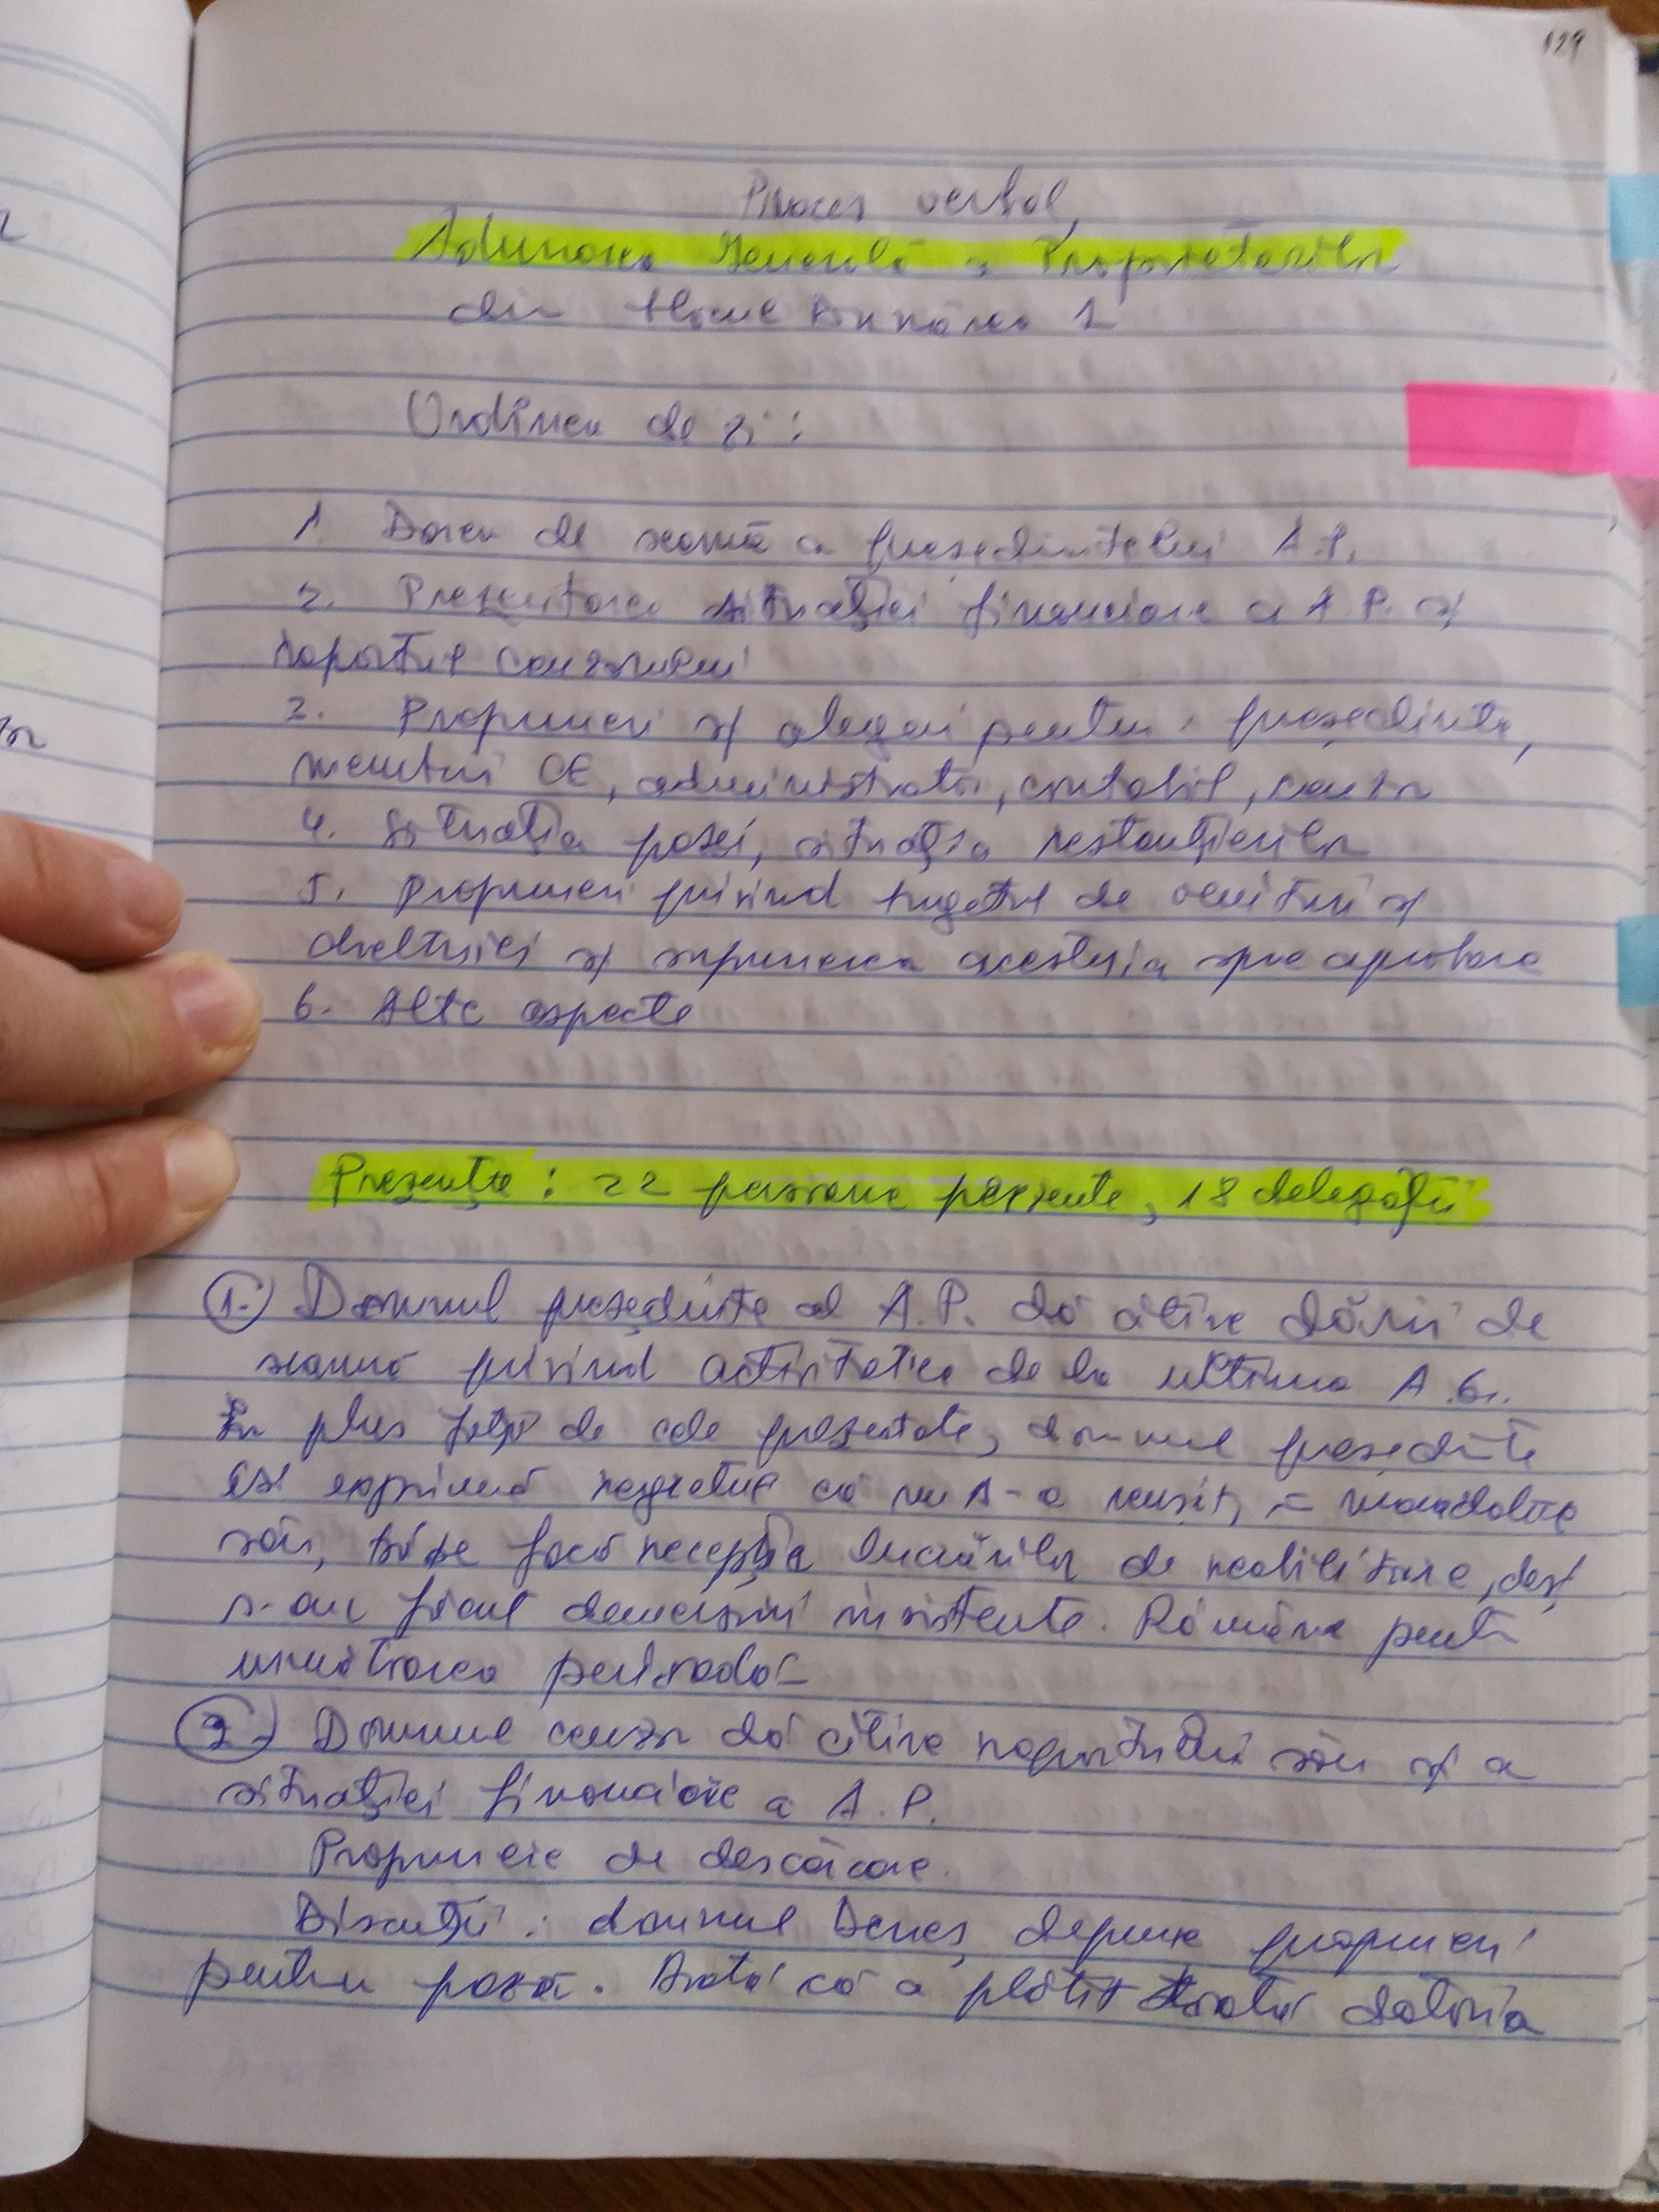 129
Proces verbal,
Adunarea Generală a Proprietarilor
din blocul Dunărea 1
Ordinea de zi:
1. Darea de seamă a președintelui A.P.
2. Prezentarea situației financiare a A.P. și
raportul cenzorului
3. Propuneri și alegeri pentru: președinte,
membrii CE, administrator, contabil, cenzor
4. Situația pazei, situația restanțierilor
5. Propuneri privind bugetul de venituri și
cheltuieli și supunerea acestuia spre aprobare
6. Alte aspecte
Prezența: 22 persoane prezente, 18 delegații
1. Domnul președinte al A.P. dă citire dării de
seamă privind activitatea de la ultima A.G.
În plus față de cele prezentate, domnul președinte
își exprimă regretul că nu s-a reușit, în mandatul
său, să se facă recepția lucrărilor de reabilitare, deși
s-au făcut demersuri insistente. Rămâne pentru
următoarea perioadă
2. Domnul cenzor dă citire raportului său și a
situației financiare a A.P.
Propunere de descărcare.
Discuții: domnul Deneș depune propuneri
pentru pază. Arată că a plătit datoria